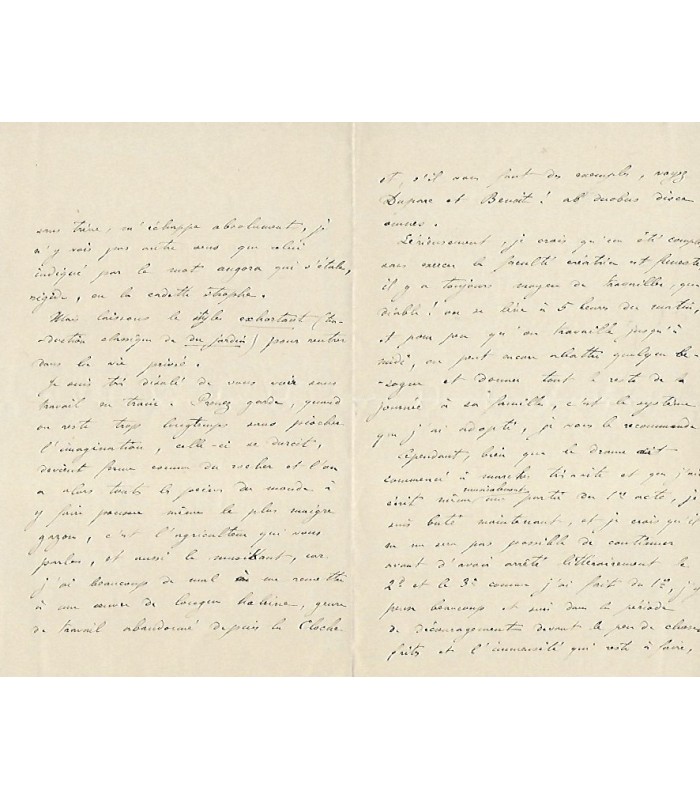 sans trève, m'échappe absolument, je
n'y vois pas autre sens que celui
indiqué par le mot angora qui s'étale,
rigide, en la cadette strophe.
Mais laissons le style exhortant (tra-
duction classique de du jardin) pour rentrer
dans la vie privée.
Je suis très désolé de vous voir sans
travail en train. Prenez garde, quand
on reste trop longtemps sans piocher
l'imagination, celle-ci se durcit,
devient ferme comme du rocher et l'on
a alors toutes les peines du monde à
y faire pousser même le plus maigre
gazon, c'est l'agriculteur qui vous
parle, et aussi le musikant, car
j'ai beaucoup de mal à me remettre
à une œuvre de longue haleine, genre
de travail abandonné depuis la Cloche
et, s'il vous faut des exemples, voyez
Duparc et Benoît! ab duobus disce
omnes.
Sérieusement, je crois qu'en été
sans exercer la faculté créatrice est funeste
il y a toujours moyen de travailler, que
diable! on se lève à 5 heures du matin,
et pour peu qu'on travaille jusqu'à
midi, on peut encore abattre quelque be-
-sogne et donner tout le reste de la
journée à sa famille, c'est le système
que j'ai adopté, je vous le recommande
Cependant, bien que le drame ait
commencé à marcher très vite et que j'aie
écrit même musicalement une partie du 1er acte, je
suis buté maintenant, et je crois qu'il
ne me sera pas possible de continuer
avant d'avoir arrêté littérairement le
2d et le 3e comme j'ai fait du 1er, j'y
pense beaucoup et suis dans la période
de découragement devant le peu de choses
faites et l'immensité qui reste à faire,